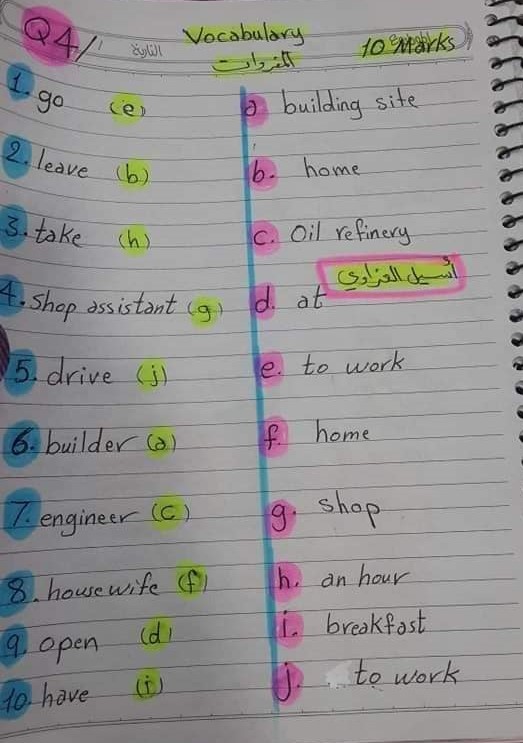 Q4/
Vocabulary
10 Marks
التاريخ
المفردات
1. go (e) a building site
2. leave (b) b. home
3. take (h) c. Oil refinery
أسيل العزاوي
4. shop assistant (g) d. at
5. drive (j) e. to work
6. builder (a) f. home
7. engineer (c) g. shop
8. housewife (f) h. an hour
9. open (d) i. breakfast
10. have (i) j. to work